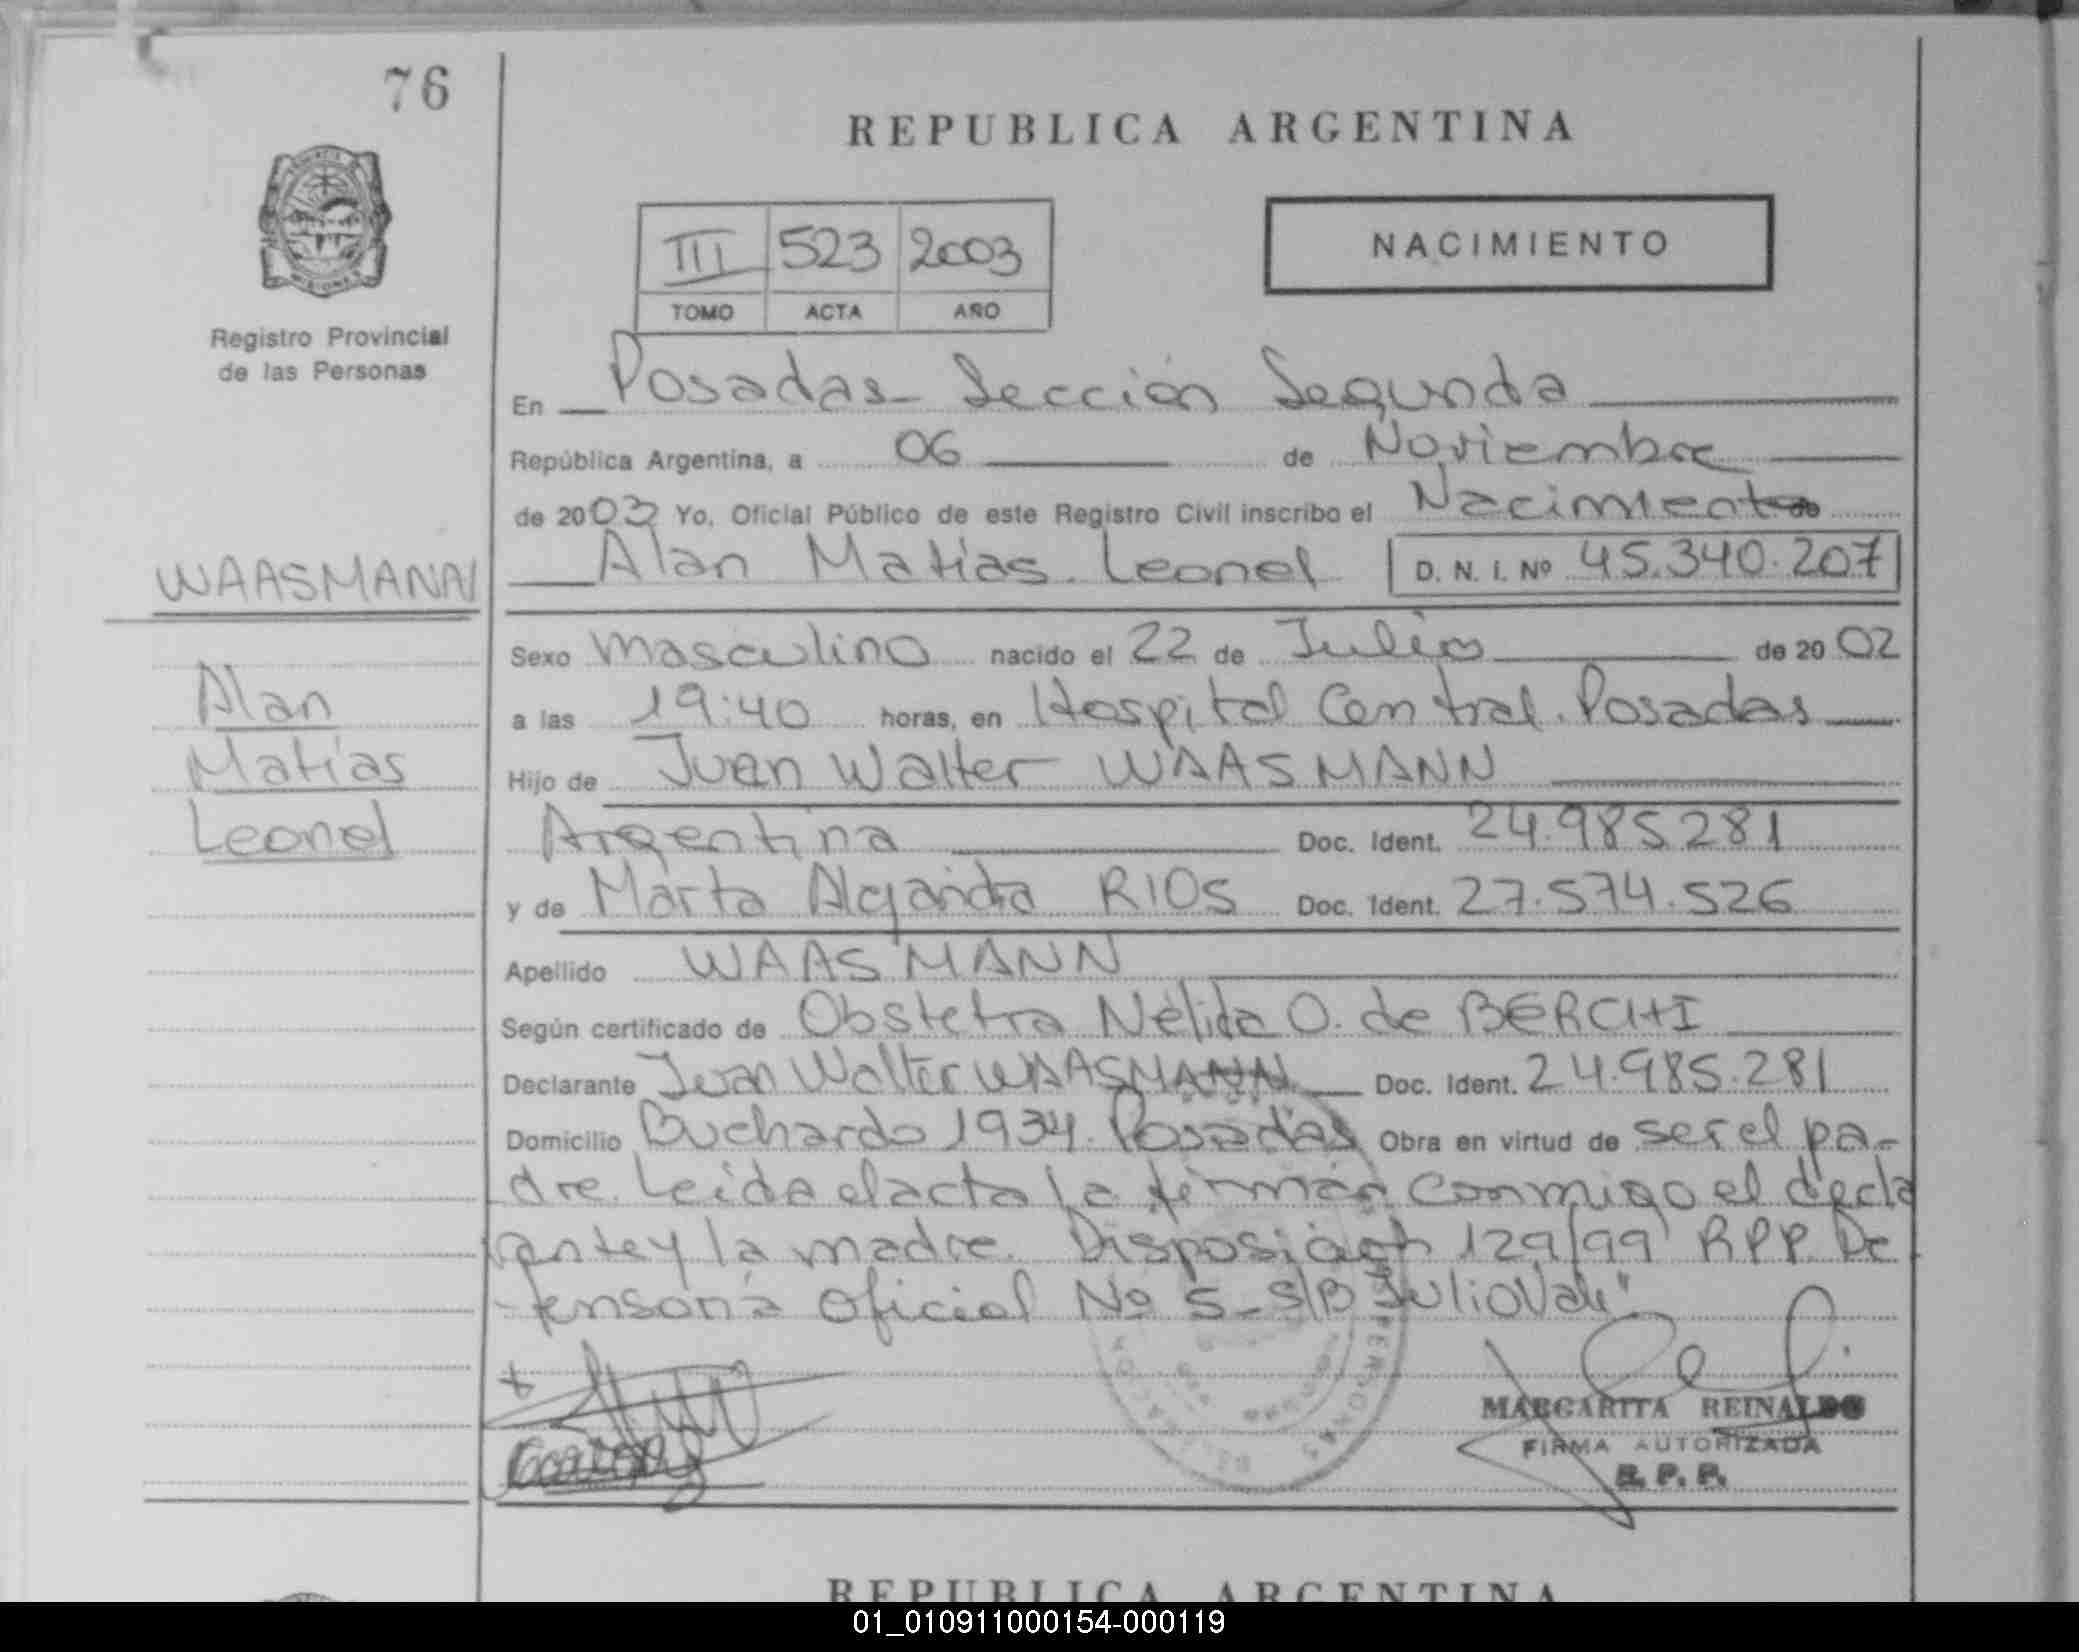 76
REPUBLICA ARGENTINA
III 523 2003
TOMO ACTA AÑO
NACIMIENTO
Registro Provincial
de las Personas
En Posadas - Sección Segunda
República Argentina, a 06 de Noviembre
de 2003 Yo, Oficial Público de este Registro Civil inscribo el Nacimiento
WAASMANN
Alan Matías Leonel D. N. I. Nº 45.340.207
Sexo Masculino nacido el 22 de Julio de 2002
Alan
a las 19:40 horas, en Hospital Central. Posadas
Matías
Hijo de Juan Walter WAASMANN
Leonel
Argentina Doc. Ident. 24.985.281
y de Marta Alejandra RIOS Doc. Ident. 27.574.526
Apellido WAASMANN
Según certificado de Obstetra Nélida O. de BERCHI
Declarante Juan Walter WAASMANN Doc. Ident. 24.985.281
Domicilio Buchardo 1934. Posadas Obra en virtud de ser el pa-
dre. Leída el acta la firman conmigo el decla
rante y la madre. Disposición 129/99 RPP De
fensoría Oficial Nº 5 - S/B
MARGARITA REINALDO
FIRMA AUTORIZADA
R. P. P.
REPUBLICA ARGENTINA
01_010911000154-000119